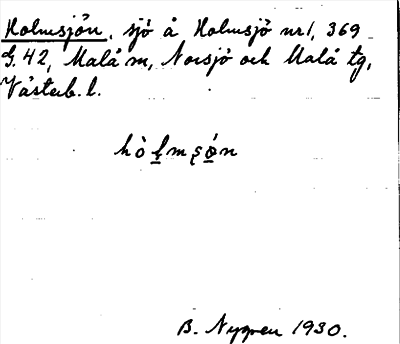 Holmsjön, sjö å Holmsjö nr 1, 369
G. 42, Malå m, Norsjö och Malå tg,
Västerb. l.
hòḻmşǿ̱n
B. Nygren 1930.